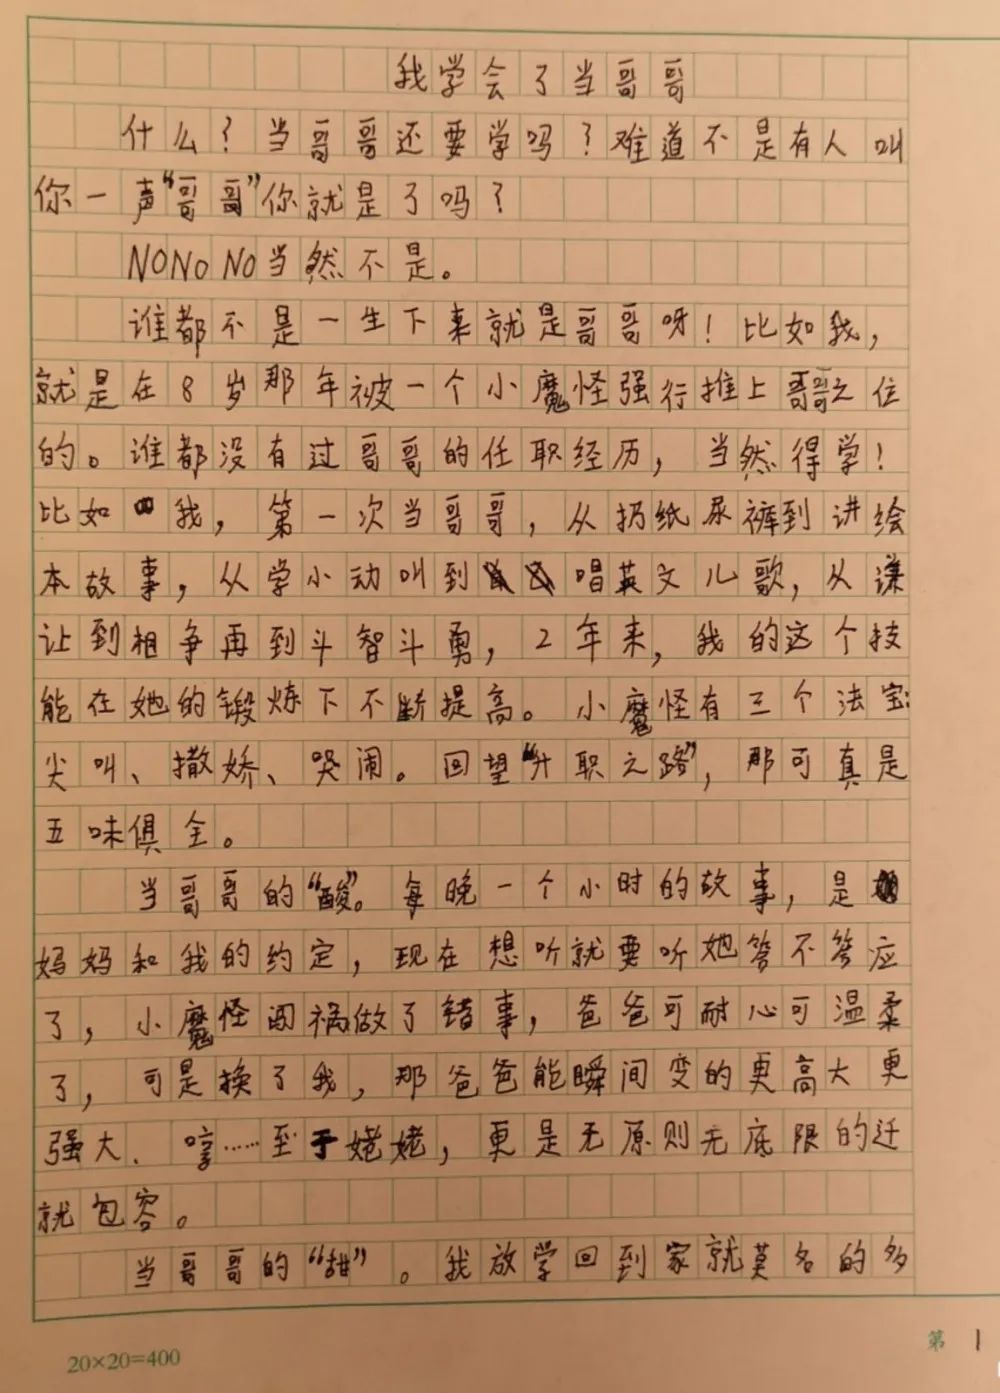 我学会了当哥哥
什么？当哥哥还要学吗？难道不是有人叫
你一声“哥哥”你就是了吗？
NONONO当然不是。
谁都不是一生下来就是哥哥呀！比如我，
就是在8岁那年被一个小魔怪强行推上哥哥之位
的。谁都没有过哥哥的任职经历，当然得学！
比如我，第一次当哥哥，从扔纸尿裤到讲绘
本故事，从学小动叫到唱英文儿歌，从谦
让到相争再到斗智斗勇，2年来，我的这个技
能在她的锻炼下不断提高。小魔怪有三个法宝：
尖叫、撒娇、哭闹。回望“升职之路”，那可真是
五味俱全。
当哥哥的“酸”。每晚一个小时的故事，是
妈妈和我的约定，现在想听就要听她答不答应
了，小魔怪闯祸做了错事，爸爸可耐心可温柔
了，可是换了我，那爸爸能瞬间变的更高大更
强大、哼……至于姥姥，更是无原则无底限的迁
就包容。
当哥哥的“甜”。我放学回到家就莫名的多
第 1
20×20=400